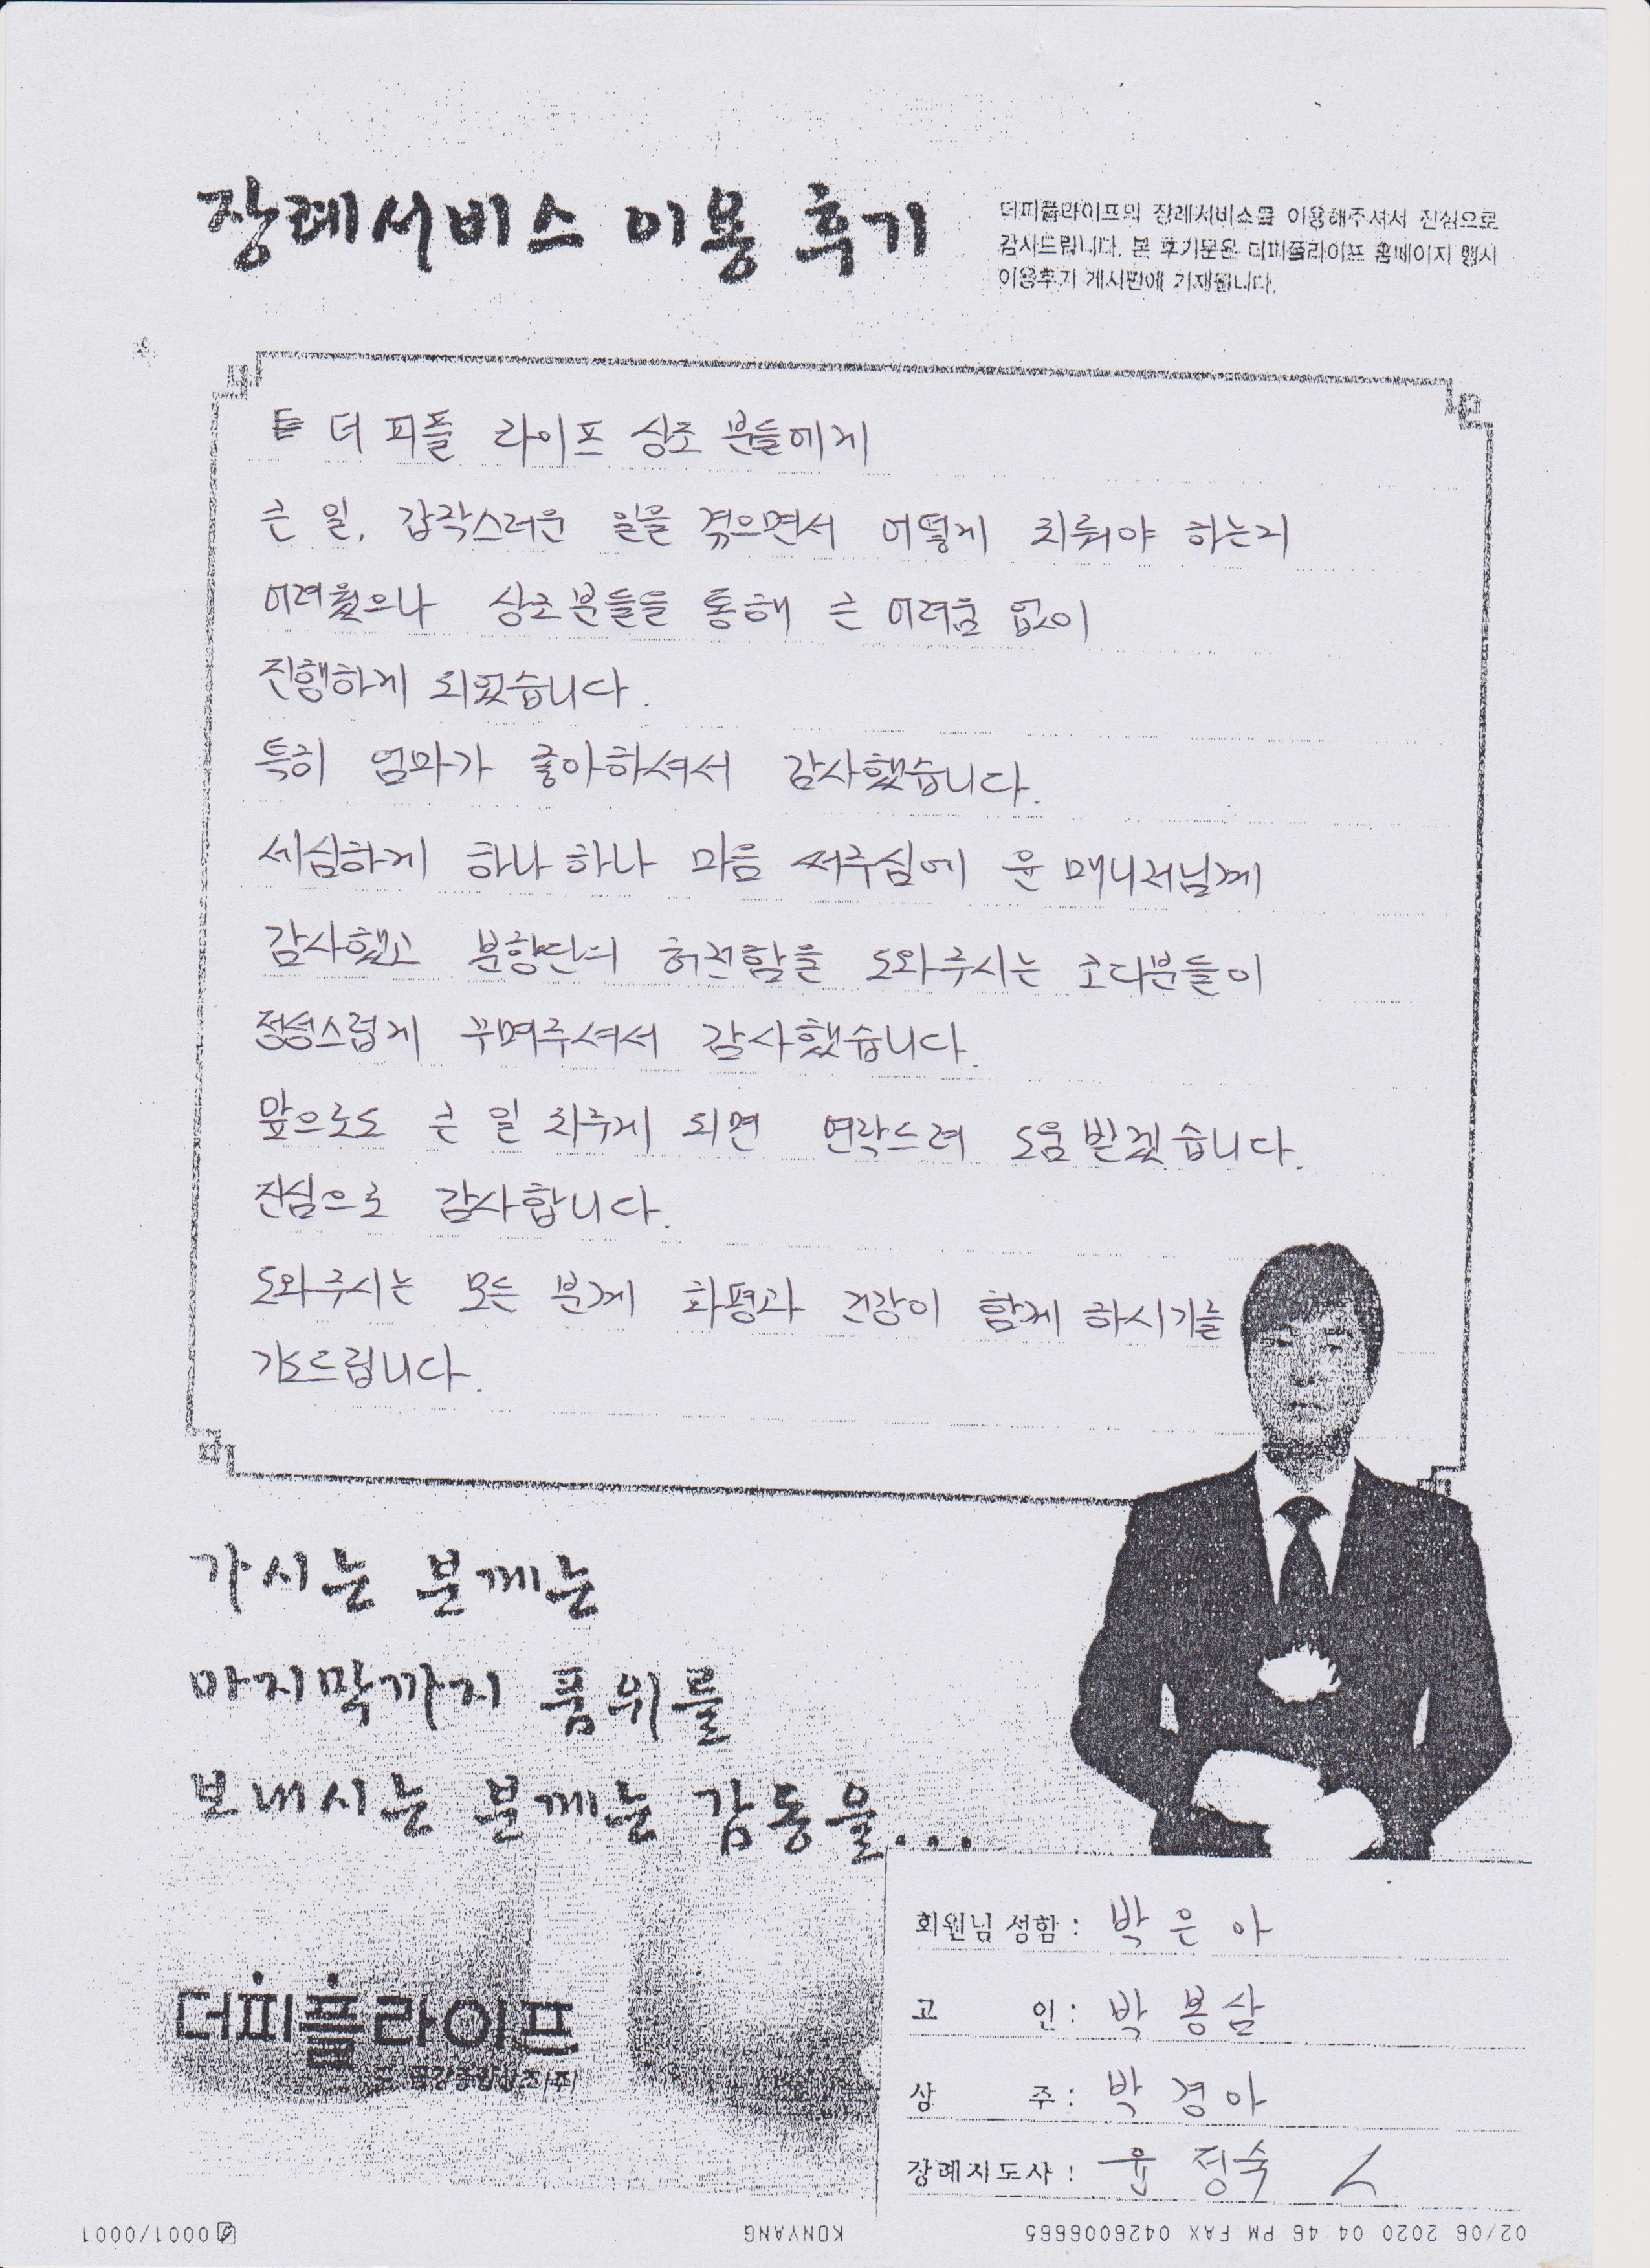 장례서비스 이용 후기
더피플라이프의 장례서비스를 이용해주셔서 진심으로
감사드립니다. 본 후기문은 더피플라이프 홈페이지 행사
이용후기 게시판에 기재됩니다.
더 피플 라이프 상조 분들에게
큰 일, 갑작스러운 일을 겪으면서 어떻게 치뤄야 하는지
어려웠으나 상조분들을 통해 큰 어려움 없이
진행하게 되었습니다.
특히 엄마가 좋아하셔서 감사했습니다.
세심하게 하나하나 마음 써주심에 윤 매니저님께
감사했고 분향단의 허전함을 도와주시는 초다분들이
정성스럽게 꾸며주셔서 감사했습니다.
앞으로도 큰 일 치루게 되면 연락드려 도움받겠습니다.
진심으로 감사합니다.
도와주시는 모든 분께 화평과 건강이 함께 하시기를
기도드립니다.
가시는 분께는
마지막까지 품위를
보내시는 분께는 감동을...
더피플라이프
금강종합상조(주)
회원님 성함 : 박은아
고 인 : 박봉삼
상 주 : 박경아
장례지도사 : 윤정숙
02/06 2020 04:46 PM FAX 0426006665 KONYANG 0001/0001